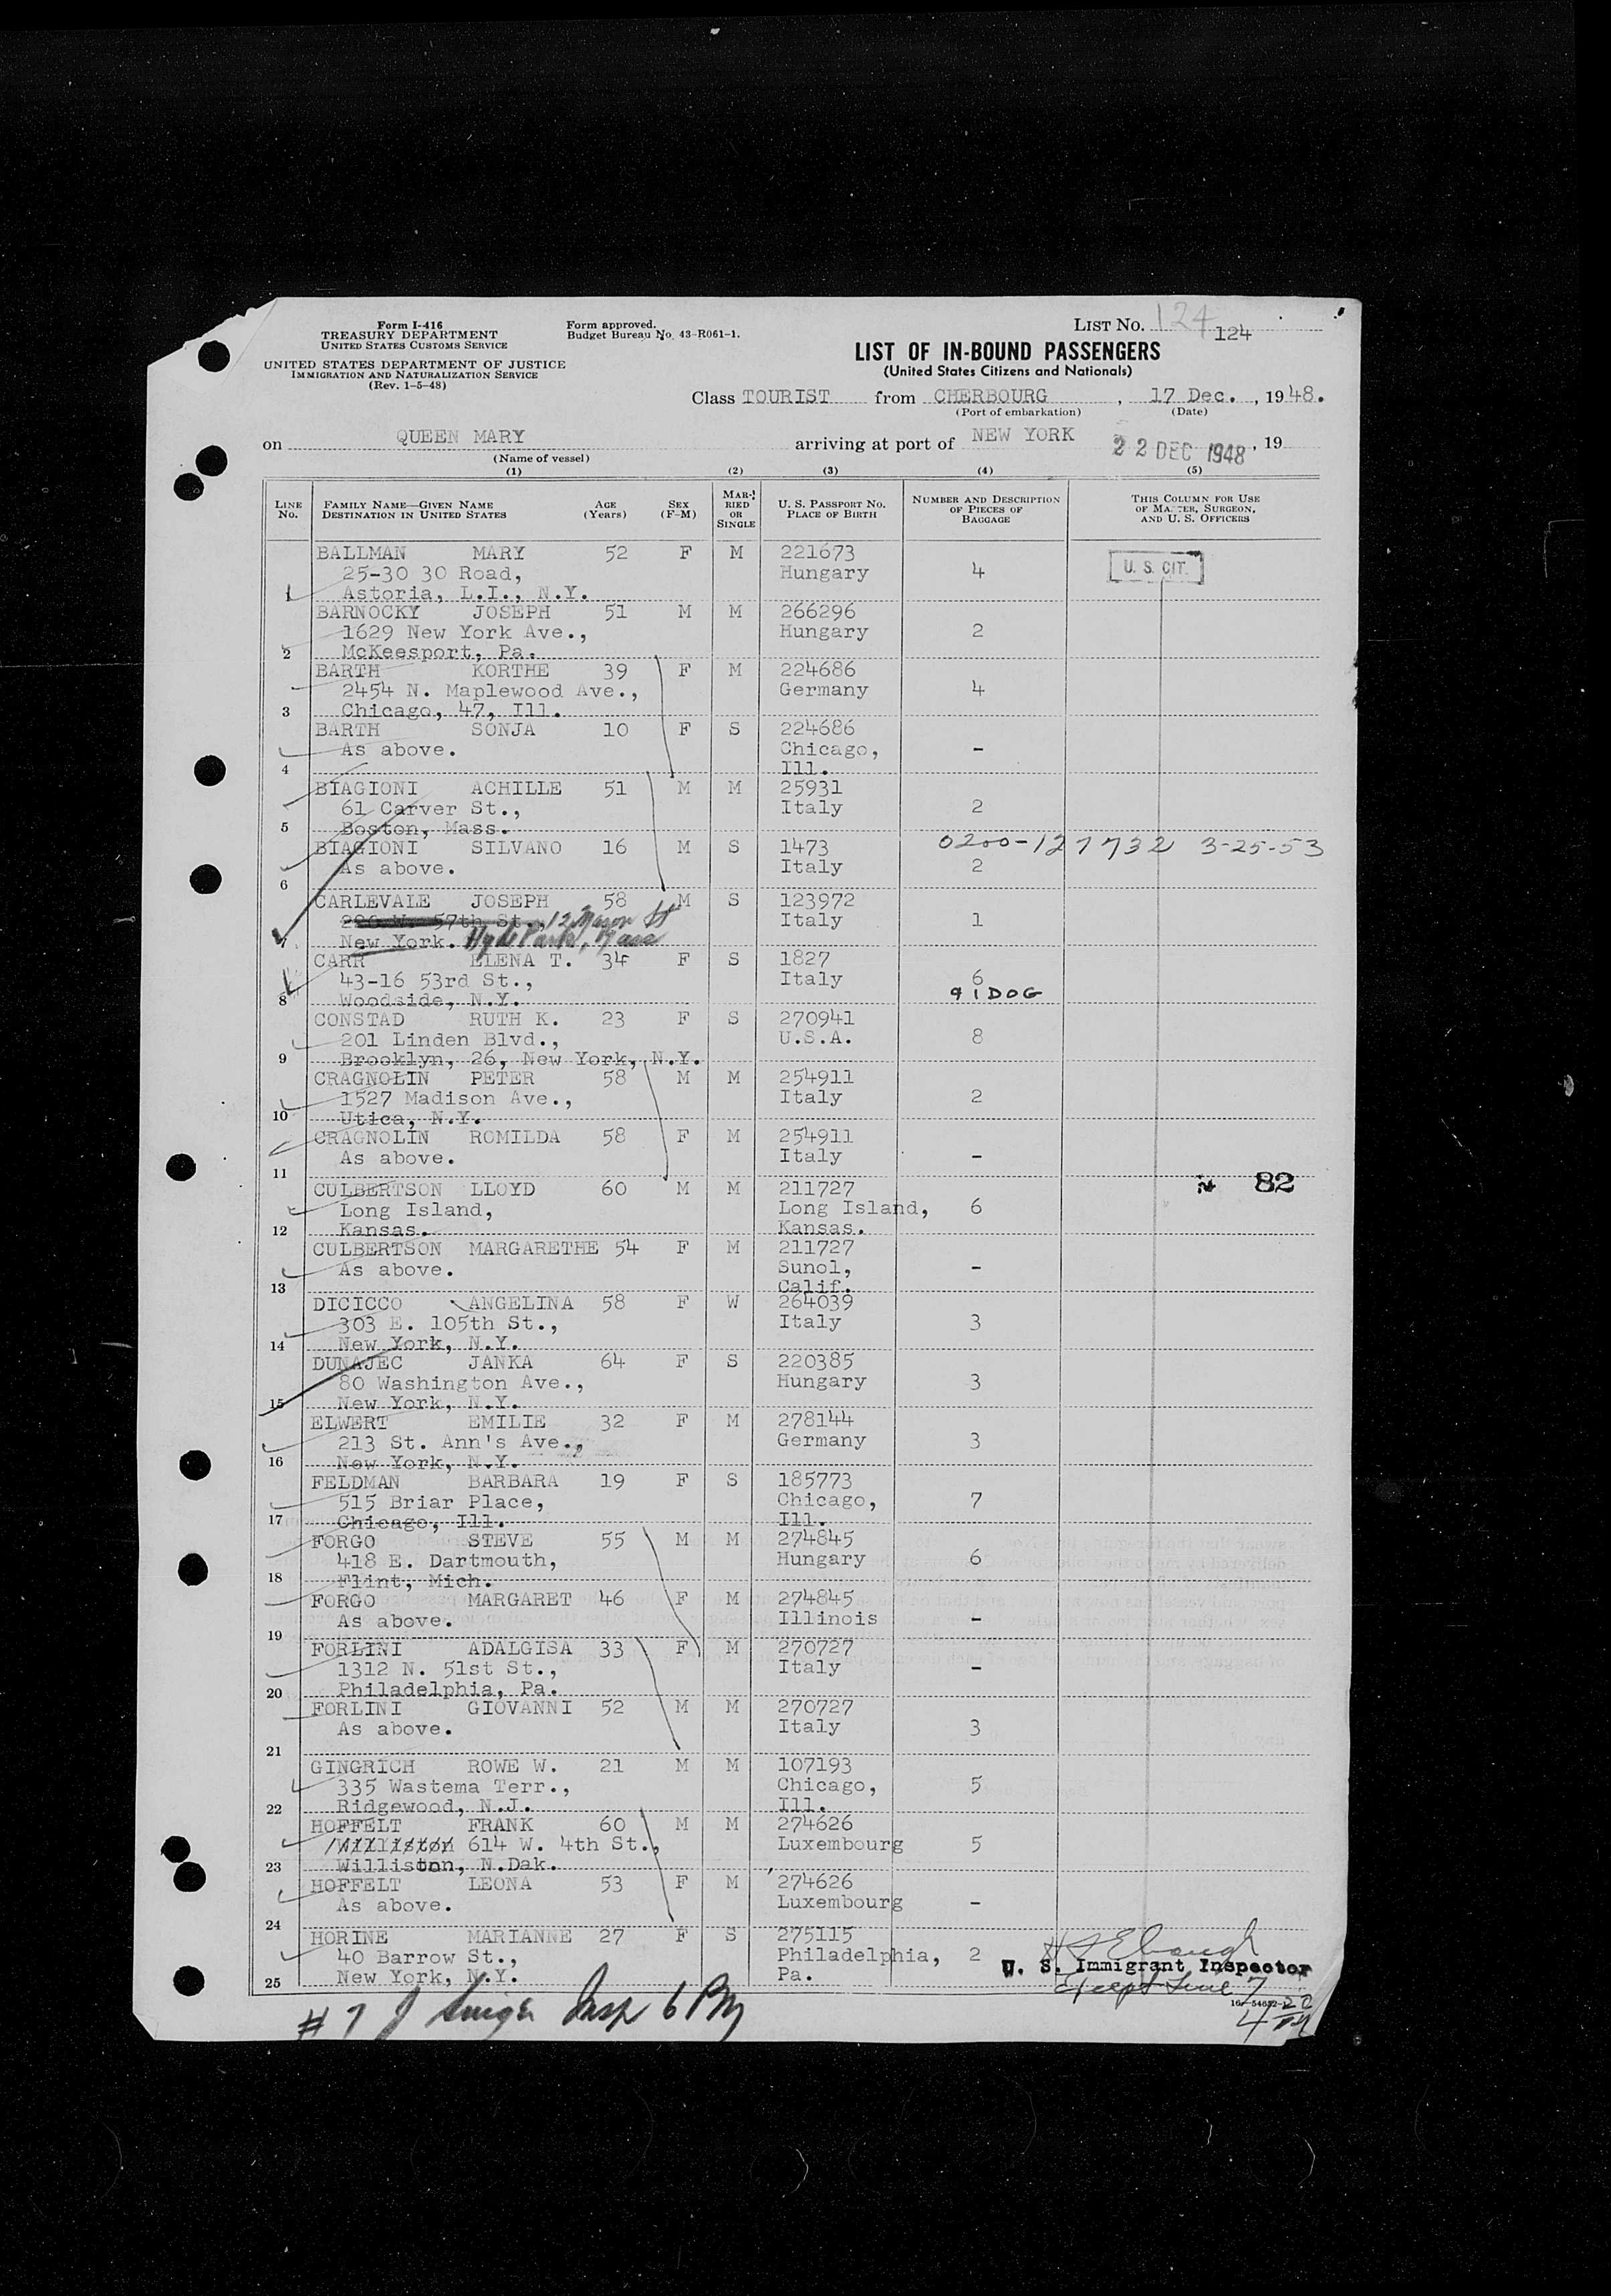 Form I-416
TREASURY DEPARTMENT
UNITED STATES CUSTOMS SERVICE
UNITED STATES DEPARTMENT OF JUSTICE
IMMIGRATION AND NATURALIZATION SERVICE
(Rev. 1-5-48)
Form approved.
Budget Bureau No. 43-R061-1.
LIST No. 124 124
LIST OF IN-BOUND PASSENGERS
(United States Citizens and Nationals)
Class TOURIST from CHERBOURG, 17 Dec., 1948.
(Port of embarkation) (Date)
on QUEEN MARY arriving at port of NEW YORK 22 DEC 1948, 19
(Name of vessel)
(1) (2) (3) (4) (5)
LINE No. FAMILY NAME—GIVEN NAME DESTINATION IN UNITED STATES AGE (Years) SEX (F-M) MARRIED OR SINGLE U. S. PASSPORT NO. PLACE OF BIRTH NUMBER AND DESCRIPTION OF PIECES OF BAGGAGE THIS COLUMN FOR USE OF MASTER, SURGEON, AND U. S. OFFICERS
BALLMAN MARY 52 F M 221673
25-30 30 Road, Hungary 4 U. S. CIT.
1 Astoria, L.I., N.Y.
BARNOCKY JOSEPH 51 M M 266296
1629 New York Ave., Hungary 2
2 McKeesport, Pa.
BARTH KORTHE 39 F M 224686
2454 N. Maplewood Ave., Germany 4
3 Chicago, 47, Ill.
BARTH SONJA 10 F S 224686
As above. Chicago, -
4 Ill.
BIAGIONI ACHILLE 51 M M 25931
61 Carver St., Italy 2
5 Boston, Mass.
BIAGIONI SILVANO 16 M S 1473 0200-127732 3-25-53
As above. Italy 2
6
CARLEVALE JOSEPH 58 M S 123972
57th St., 12 Mason St Italy 1
7 New York. Hyde Park, Mass
CARR ELENA T. 34 F S 1827
43-16 53rd St., Italy 6
8 Woodside, N.Y. 1 DOG
CONSTAD RUTH K. 23 F S 270941
201 Linden Blvd., U.S.A. 8
9 Brooklyn, 26, New York, N.Y.
CRAGNOLIN PETER 58 M M 254911
1527 Madison Ave., Italy 2
10 Utica, N.Y.
CRAGNOLIN ROMILDA 58 F M 254911
As above. Italy -
11
N 82
CULBERTSON LLOYD 60 M M 211727
Long Island, Long Island, 6
12 Kansas. Kansas.
CULBERTSON MARGARETHE 54 F M 211727
As above. Sunol, -
13 Calif.
DICICCO ANGELINA 58 F W 264039
303 E. 105th St., Italy 3
14 New York, N.Y.
DUNAJEC JANKA 64 F S 220385
80 Washington Ave., Hungary 3
15 New York, N.Y.
ELWERT EMILIE 32 F M 278144
213 St. Ann's Ave., Germany 3
16 New York, N.Y.
FELDMAN BARBARA 19 F S 185773
515 Briar Place, Chicago, 7
17 Chicago, Ill. Ill.
FORGO STEVE 55 M M 274845
418 E. Dartmouth, Hungary 6
18 Flint, Mich.
FORGO MARGARET 46 F M 274845
As above. Illinois -
19
FORLINI ADALGISA 33 F M 270727
1312 N. 51st St., Italy -
20 Philadelphia, Pa.
FORLINI GIOVANNI 52 M M 270727
As above. Italy 3
21
GINGRICH ROWE W. 21 M M 107193
335 Wastema Terr., Chicago, 5
22 Ridgewood, N.J. Ill.
HOFFELT FRANK 60 M M 274626
Williston 614 W. 4th St., Luxembourg 5
23 Williston, N.Dak.
HOFFELT LEONA 53 F M 274626
As above. Luxembourg -
24
HORINE MARIANNE 27 F S 275115
40 Barrow St., Philadelphia, 2
25 New York, N.Y. Pa.
U. S. Immigrant Inspector
Except Line 7
# 7 J Insp 6 PM